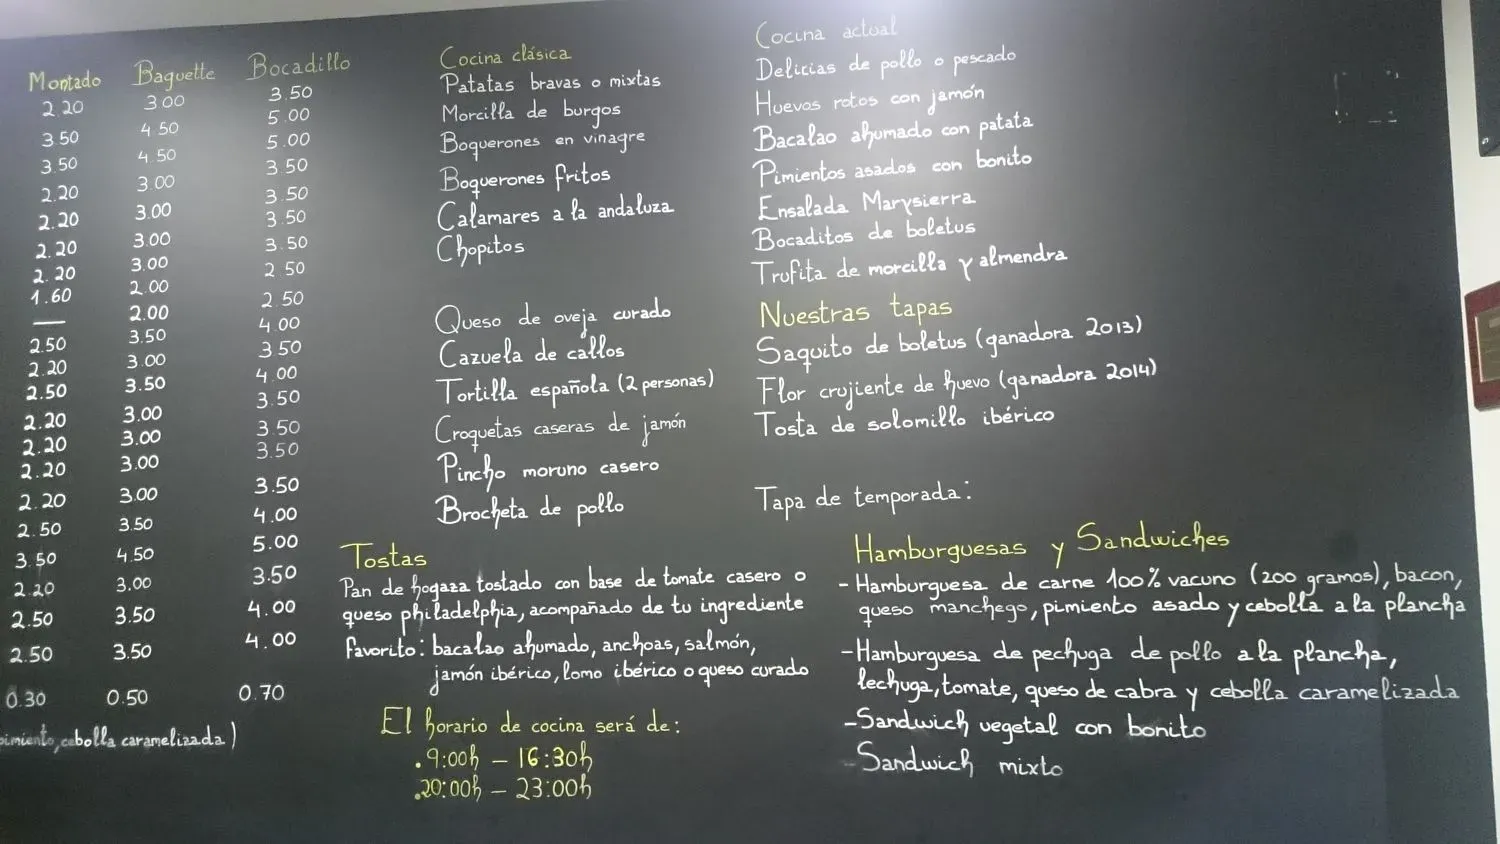 Montado Baguette Bocadillo
2.20 3.00 3.50
3.50 4.50 5.00
3.50 4.50 5.00
2.20 3.00 3.50
2.20 3.00 3.50
2.20 3.00 3.50
2.20 3.00 3.50
1.60 2.00 2.50
— 2.00 2.50
2.50 3.50 4.00
2.20 3.00 3.50
2.50 3.50 4.00
2.20 3.00 3.50
2.20 3.00 3.50
2.20 3.00 3.50
2.20 3.00 3.50
2.50 3.50 4.00
3.50 4.50 5.00
2.20 3.00 3.50
2.50 3.50 4.00
2.50 3.50 4.00
0.30 0.50 0.70
cebolla caramelizada)
Cocina clásica
Patatas bravas o mixtas
Morcilla de burgos
Boquerones en vinagre
Boquerones fritos
Calamares a la andaluza
Chopitos
Queso de oveja curado
Cazuela de callos
Tortilla española (2 personas)
Croquetas caseras de jamón
Pincho moruno casero
Brocheta de pollo
Cocina actual
Delicias de pollo o pescado
Huevos rotos con jamón
Bacalao ahumado con patata
Pimientos asados con bonito
Ensalada Marysierra
Bocaditos de boletus
Trufita de morcilla y almendra
Nuestras tapas
Saquito de boletus (ganadora 2013)
Flor crujiente de huevo (ganadora 2014)
Tosta de solomillo ibérico
Tapa de temporada:
Tostas
Pan de hogaza tostado con base de tomate casero o
queso philadelphia, acompañado de tu ingrediente
favorito: bacalao ahumado, anchoas, salmón,
jamón ibérico, lomo ibérico o queso curado
El horario de cocina será de:
.9:00h – 16:30h
.20:00h – 23:00h
Hamburguesas y Sandwiches
- Hamburguesa de carne 100% vacuno (200 gramos), bacon,
queso manchego, pimiento asado y cebolla a la plancha
- Hamburguesa de pechuga de pollo a la plancha,
lechuga, tomate, queso de cabra y cebolla caramelizada
- Sandwich vegetal con bonito
- Sandwich mixto